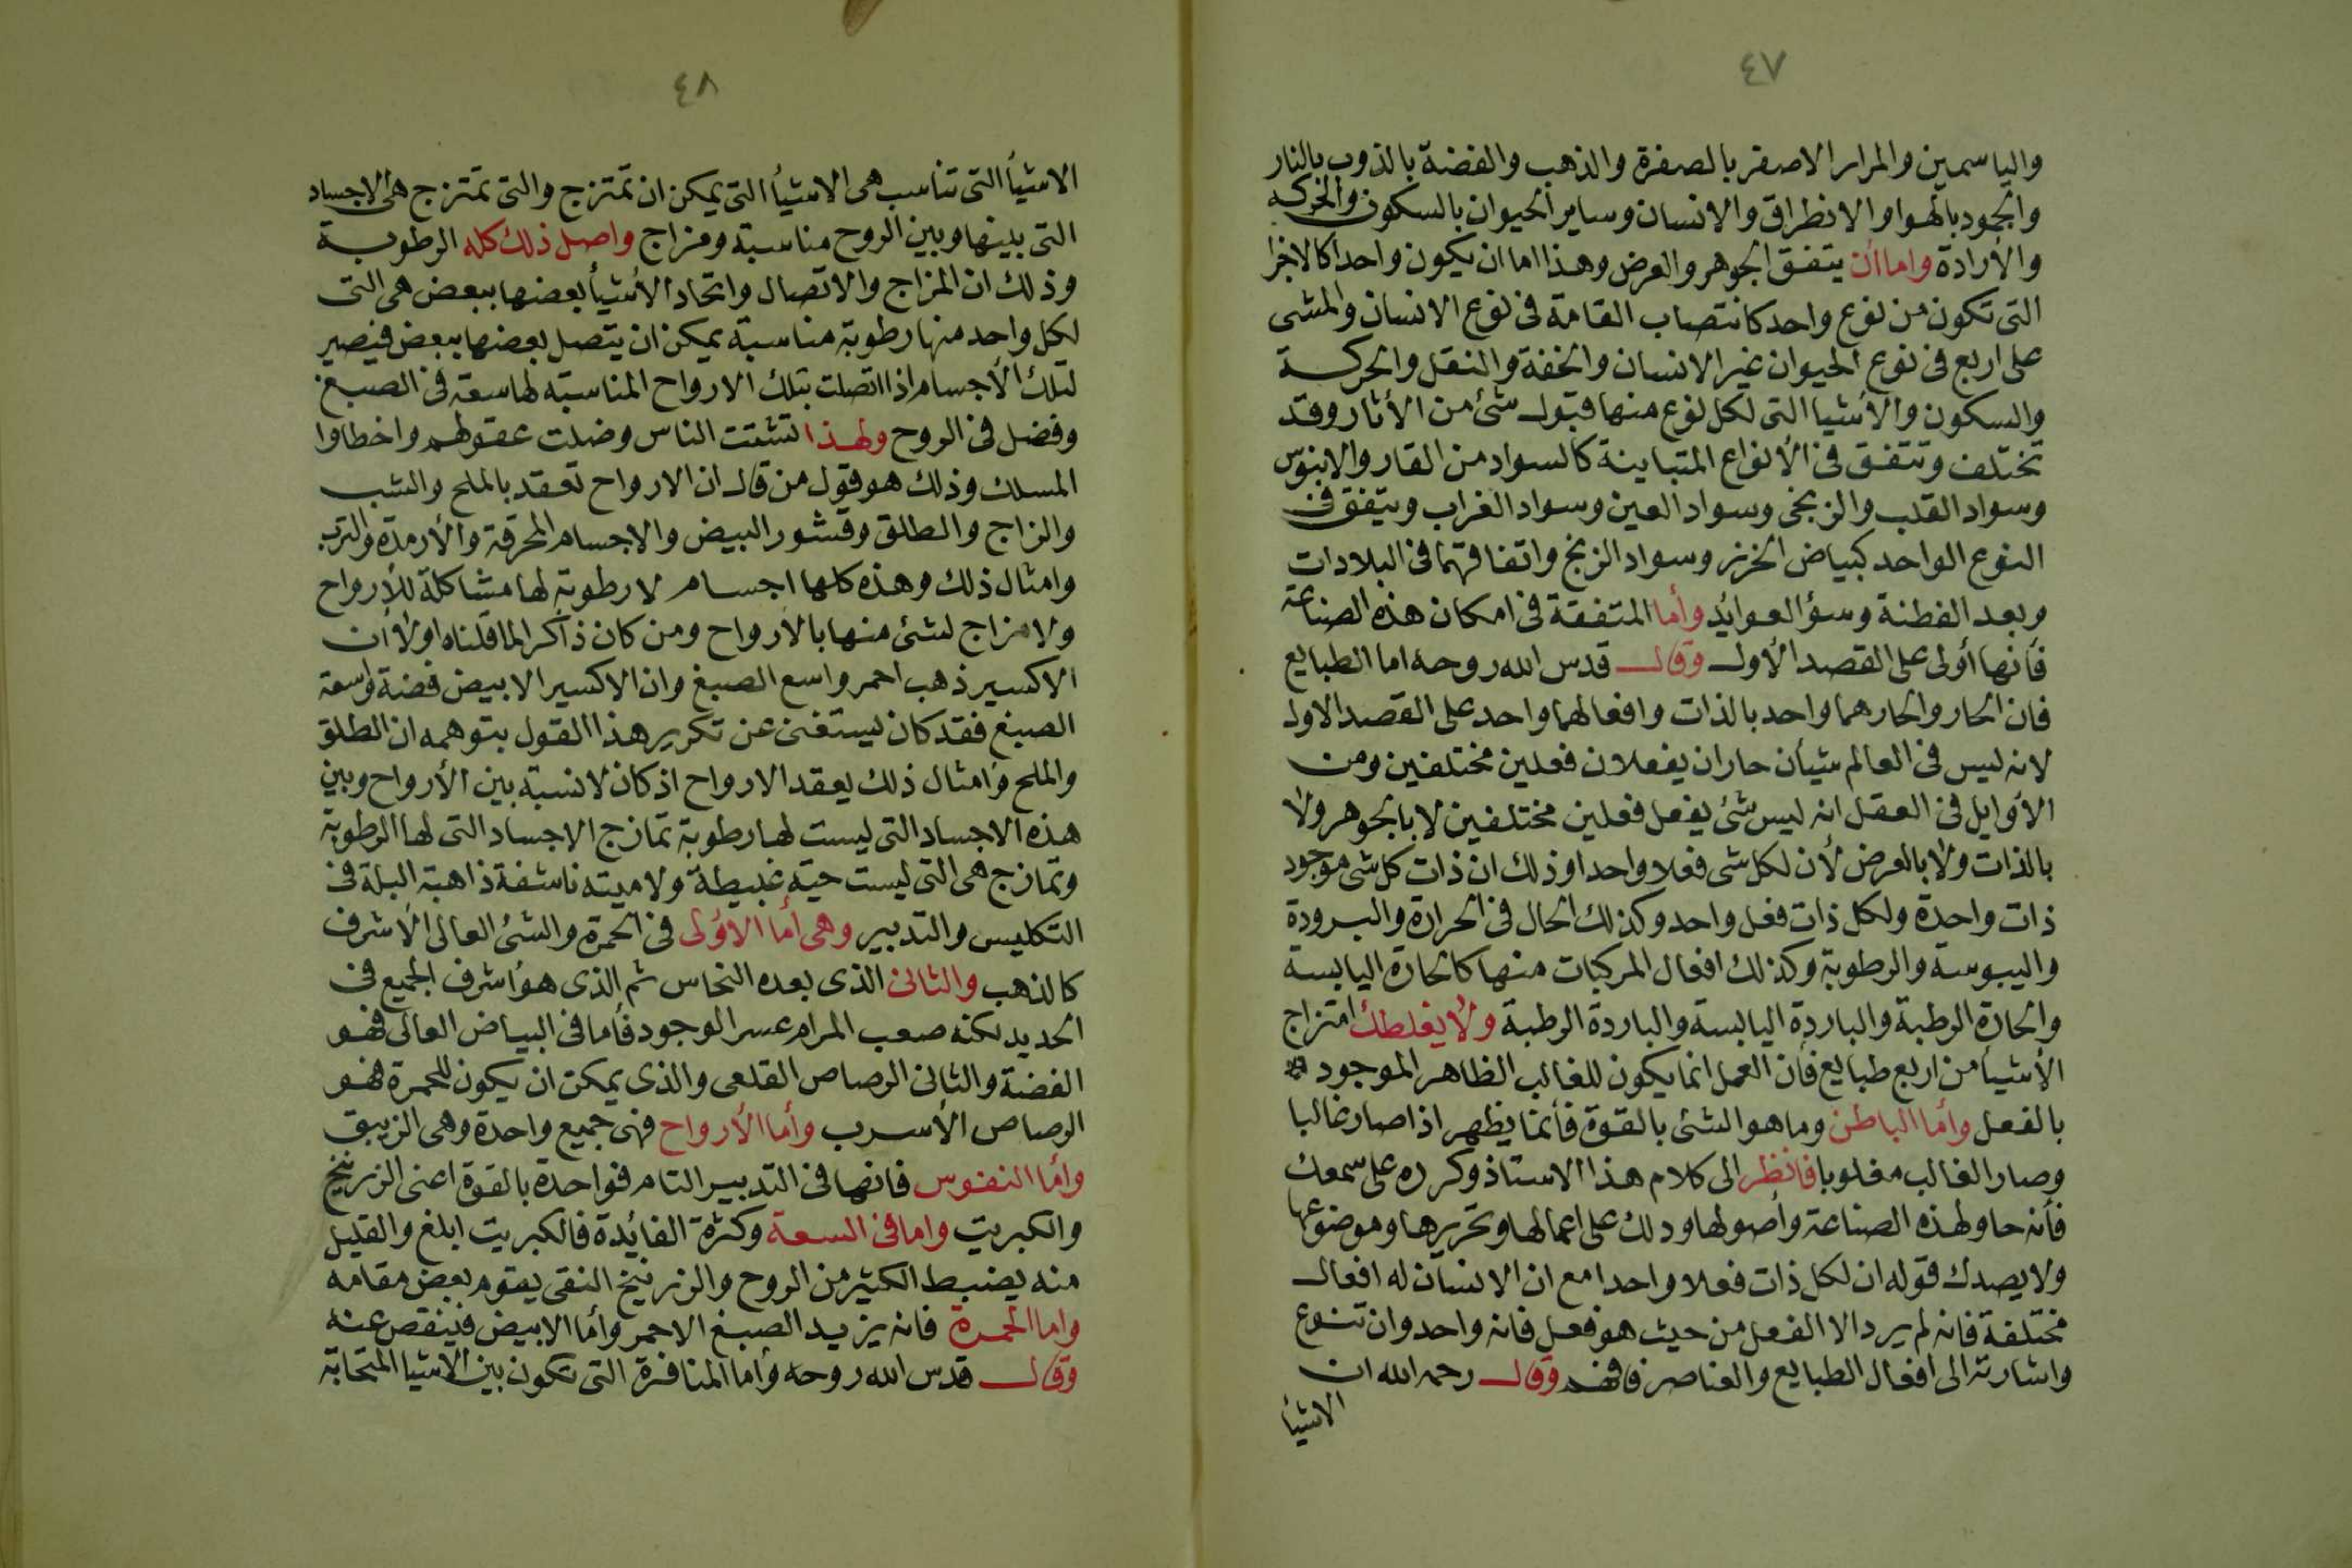 ٤٧
والياسمين والمرار الاصفر بالصفرة والذهب والفضة بالذوب بالنار
والجمود بالهوا والانطراق والانسان وساير الحيوان بالسكون والحركه
والأرادة واما أن يتفق الجوهر والعرض وهذا اما ان يكون واحدا كالاجزا
التى تكون من نوع واحد كانتصاب القامة فى نوع الانسان والمشى
على اربع فى نوع الحيوان غير الانسان والخفة والثقل والحركـة
والسكون والأشيا التى لكل نوع منها قبول شئ من الأثار وقد
تختلف وتتفق فى الأنواع المتباينة كالسواد من القار والابنوس
وسواد القلب والزنجى وسواد العين وسواد الغراب ويتفق فى
النوع الواحد كبياض الخزر وسواد الزنج واتفاقهما فى البلادات
وبعد الفطنة وسؤ العوايد وأما المتفقة فى امكان هذه الصناعة
فأنها أولى على القصد الأول وقال قدس الله روحه اما الطبايع
فان الحار والحار هما واحد بالذات وافعالهما واحد على القصد الاول
لانه ليس فى العالم شيأن حاران يفعلان فعلين مختلفين ومن
الأوايل فى العقل انه ليس شئ يفعل فعلين مختلفين لا بالجوهر ولا
بالذات ولا بالعرض لأن لكل شى فعلا واحدا وذلك ان ذات كل شى موجود
ذات واحدة ولكل ذات فعل واحد وكذلك الحال فى الحرارة والبرودة
واليبوسة والرطوبة وكذلك افعال المركبات منها كالحارة اليابسة
والحارة الرطبة والباردة اليابسة والباردة الرطبة ولا يغلطك امتزاج
الأشيأ من اربع طبايع فأن العمل انما يكون للغالب الظاهر الموجود
بالفعل وأما الباطن وما هو الشئ بالقوة فأنما يظهر اذا صار غالبا
وصار الغالب مغلوبا فانظر الى كلام هذا الاستاذ وكرره على سمعك
فأنه حاو لهذه الصناعة وأصولها ودلك على اعمالها وتحريرها وموضوعها
ولا يصدك قوله ان لكل ذات فعلا واحدا مع ان الانسان له افعال
مختلفة فانه لم يرد الا الفعل من حيث هو فعل فانه واحد وان تنوع
واشارته الى افعال الطبايع والعناصر فافهم وقال رحمه الله ان
الاشيأ
٤٨
الاشيأ التى تناسب هى الاشيأ التى يمكن ان تمتزج والتى تمتزج هى الاجساد
التى بينها وبين الروح مناسبة ومزاج واصل ذلك كله الرطوبـة
وذلك ان المزاج والاتصال واتحاد الأشيأ بعضها ببعض هى التى
لكل واحد منها رطوبة مناسبة يمكن ان يتصل بعضها ببعض فيصير
لتلك الأجسام اذا اتصلت بتلك الارواح المناسبة لها سعة فى الصبغ
وفضل فى الروح ولهذا تشتت الناس وضلت عقولهم واخطاوا
المسلك وذلك هو قول من قال ان الارواح تعقد بالملح والشب
والزاج والطلق وقشور البيض والاجسام المحرقة والأرمدة والترب
وامثال ذلك وهذه كلها اجسام لا رطوبة لها مشاكلة للأرواح
ولا مزاج لشئ منها بالأرواح ومن كان ذاكرا لما قلناه اولا أن
الاكسير ذهب احمر واسع الصبغ وان الاكسير الابيض فضة واسعة
الصبغ فقد كان يستغنى عن تكرير هذا القول بتوهمه ان الطلق
والملح وأمثال ذلك يعقد الارواح اذ كان لا نسبة بين الأرواح وبين
هذه الاجساد التى ليست لها رطوبة تمازج الاجساد التى لها الرطوبة
وتمازج هى التى ليست حية غبيطة ولا ميته ناشفة ذاهبة البلة فى
التكليس والتدبير وهى أما الاؤلى فى الحمرة والشئ العالى الأشرف
كالذهب والثانى الذى بعده النحاس ثم الذى هو أشرف الجميع فى
الحديد لكنه صعب المرام عسر الوجود فأما فى البياض العالى فهو
الفضة والثانى الرصاص القلعى والذى يمكن ان يكون للحمرة فهو
الرصاص الأسرب وأما الأرواح فهى جميع واحدة وهى الزيبق
وأما النفوس فانها فى التدبير التام فواحدة بالقوة اعنى الزرنيخ
والكبريت واما فى السعة وكثرة الفائدة فالكبريت ابلغ والقليل
منه يضبط الكثير من الروح والزرنيخ النقى يقوم بعض مقامه
واما الحمرة فانه يزيد الصبغ الاحمر وأما الابيض فينقص عنه
وقال قدس الله روحه وأما المنافرة التى تكون بين الاشيا المتحابة